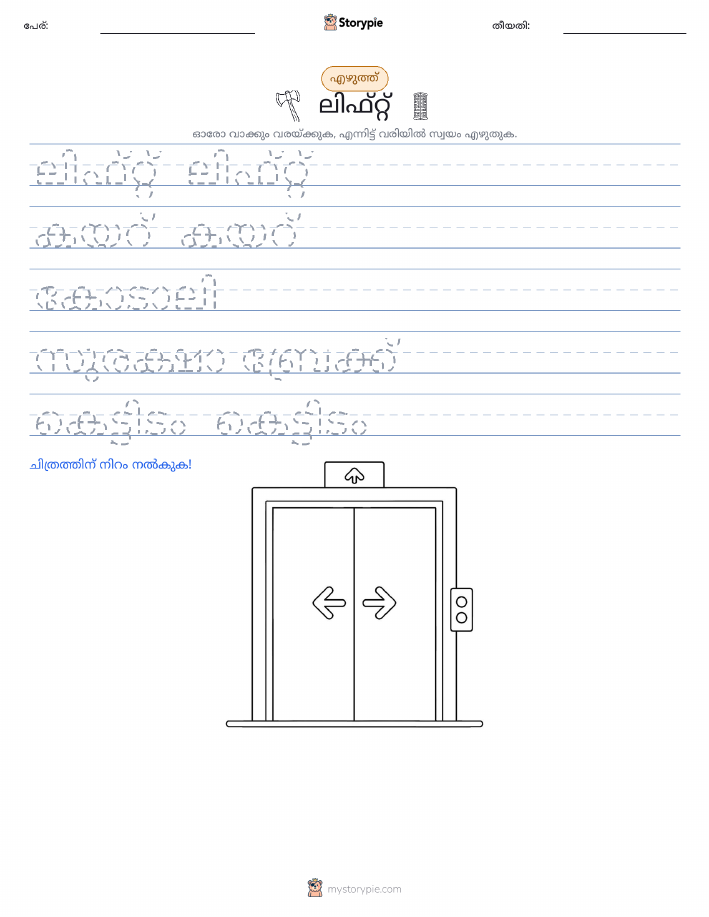 പേര്: Storypie തീയതി:
എഴുത്ത്
ലിഫ്റ്റ്
ഓരോ വാക്കും വരയ്ക്കുക, എന്നിട്ട് വരിയിൽ സ്വയം എഴുതുക.
ലിഫ്റ്റ് ലിഫ്റ്റ്
കയറ് കയറ്
കോടാലി
സുരക്ഷാ ബ്രേക്ക്
കെട്ടിടം കെട്ടിടം
ചിത്രത്തിന് നിറം നൽകുക!
mystorypie.com